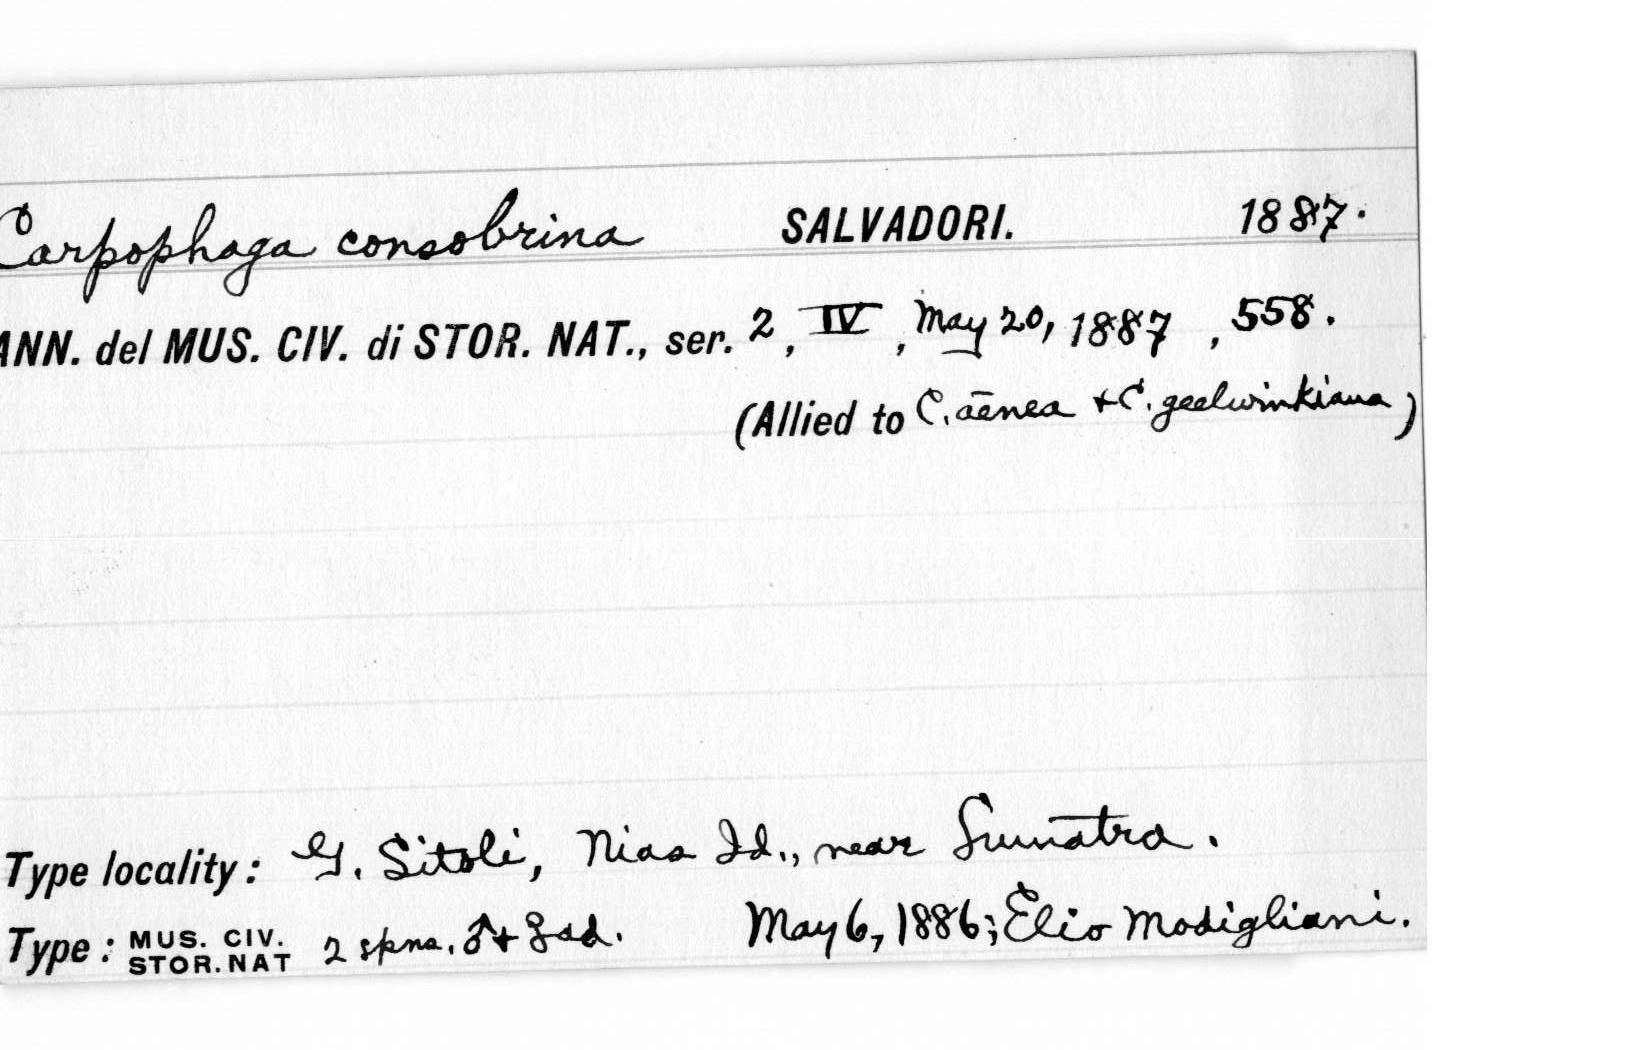 Carpophaga consobrina SALVADORI. 1887.
ANN. del MUS. CIV. di STOR. NAT., ser. 2, IV, May 20, 1887, 558.
(Allied to C. aēnea + C. geelwinkiana)
Type locality: G. Sitoli, Nias Id., near Sumatra.
Type: MUS. CIV. STOR. NAT 2 spns. ♂ + ♀ ad. May 6, 1886; Elio Modigliani.